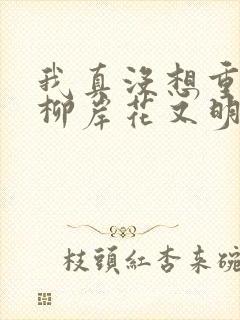 我真没想重
柳岸花又明
枝頭紅杏束碗